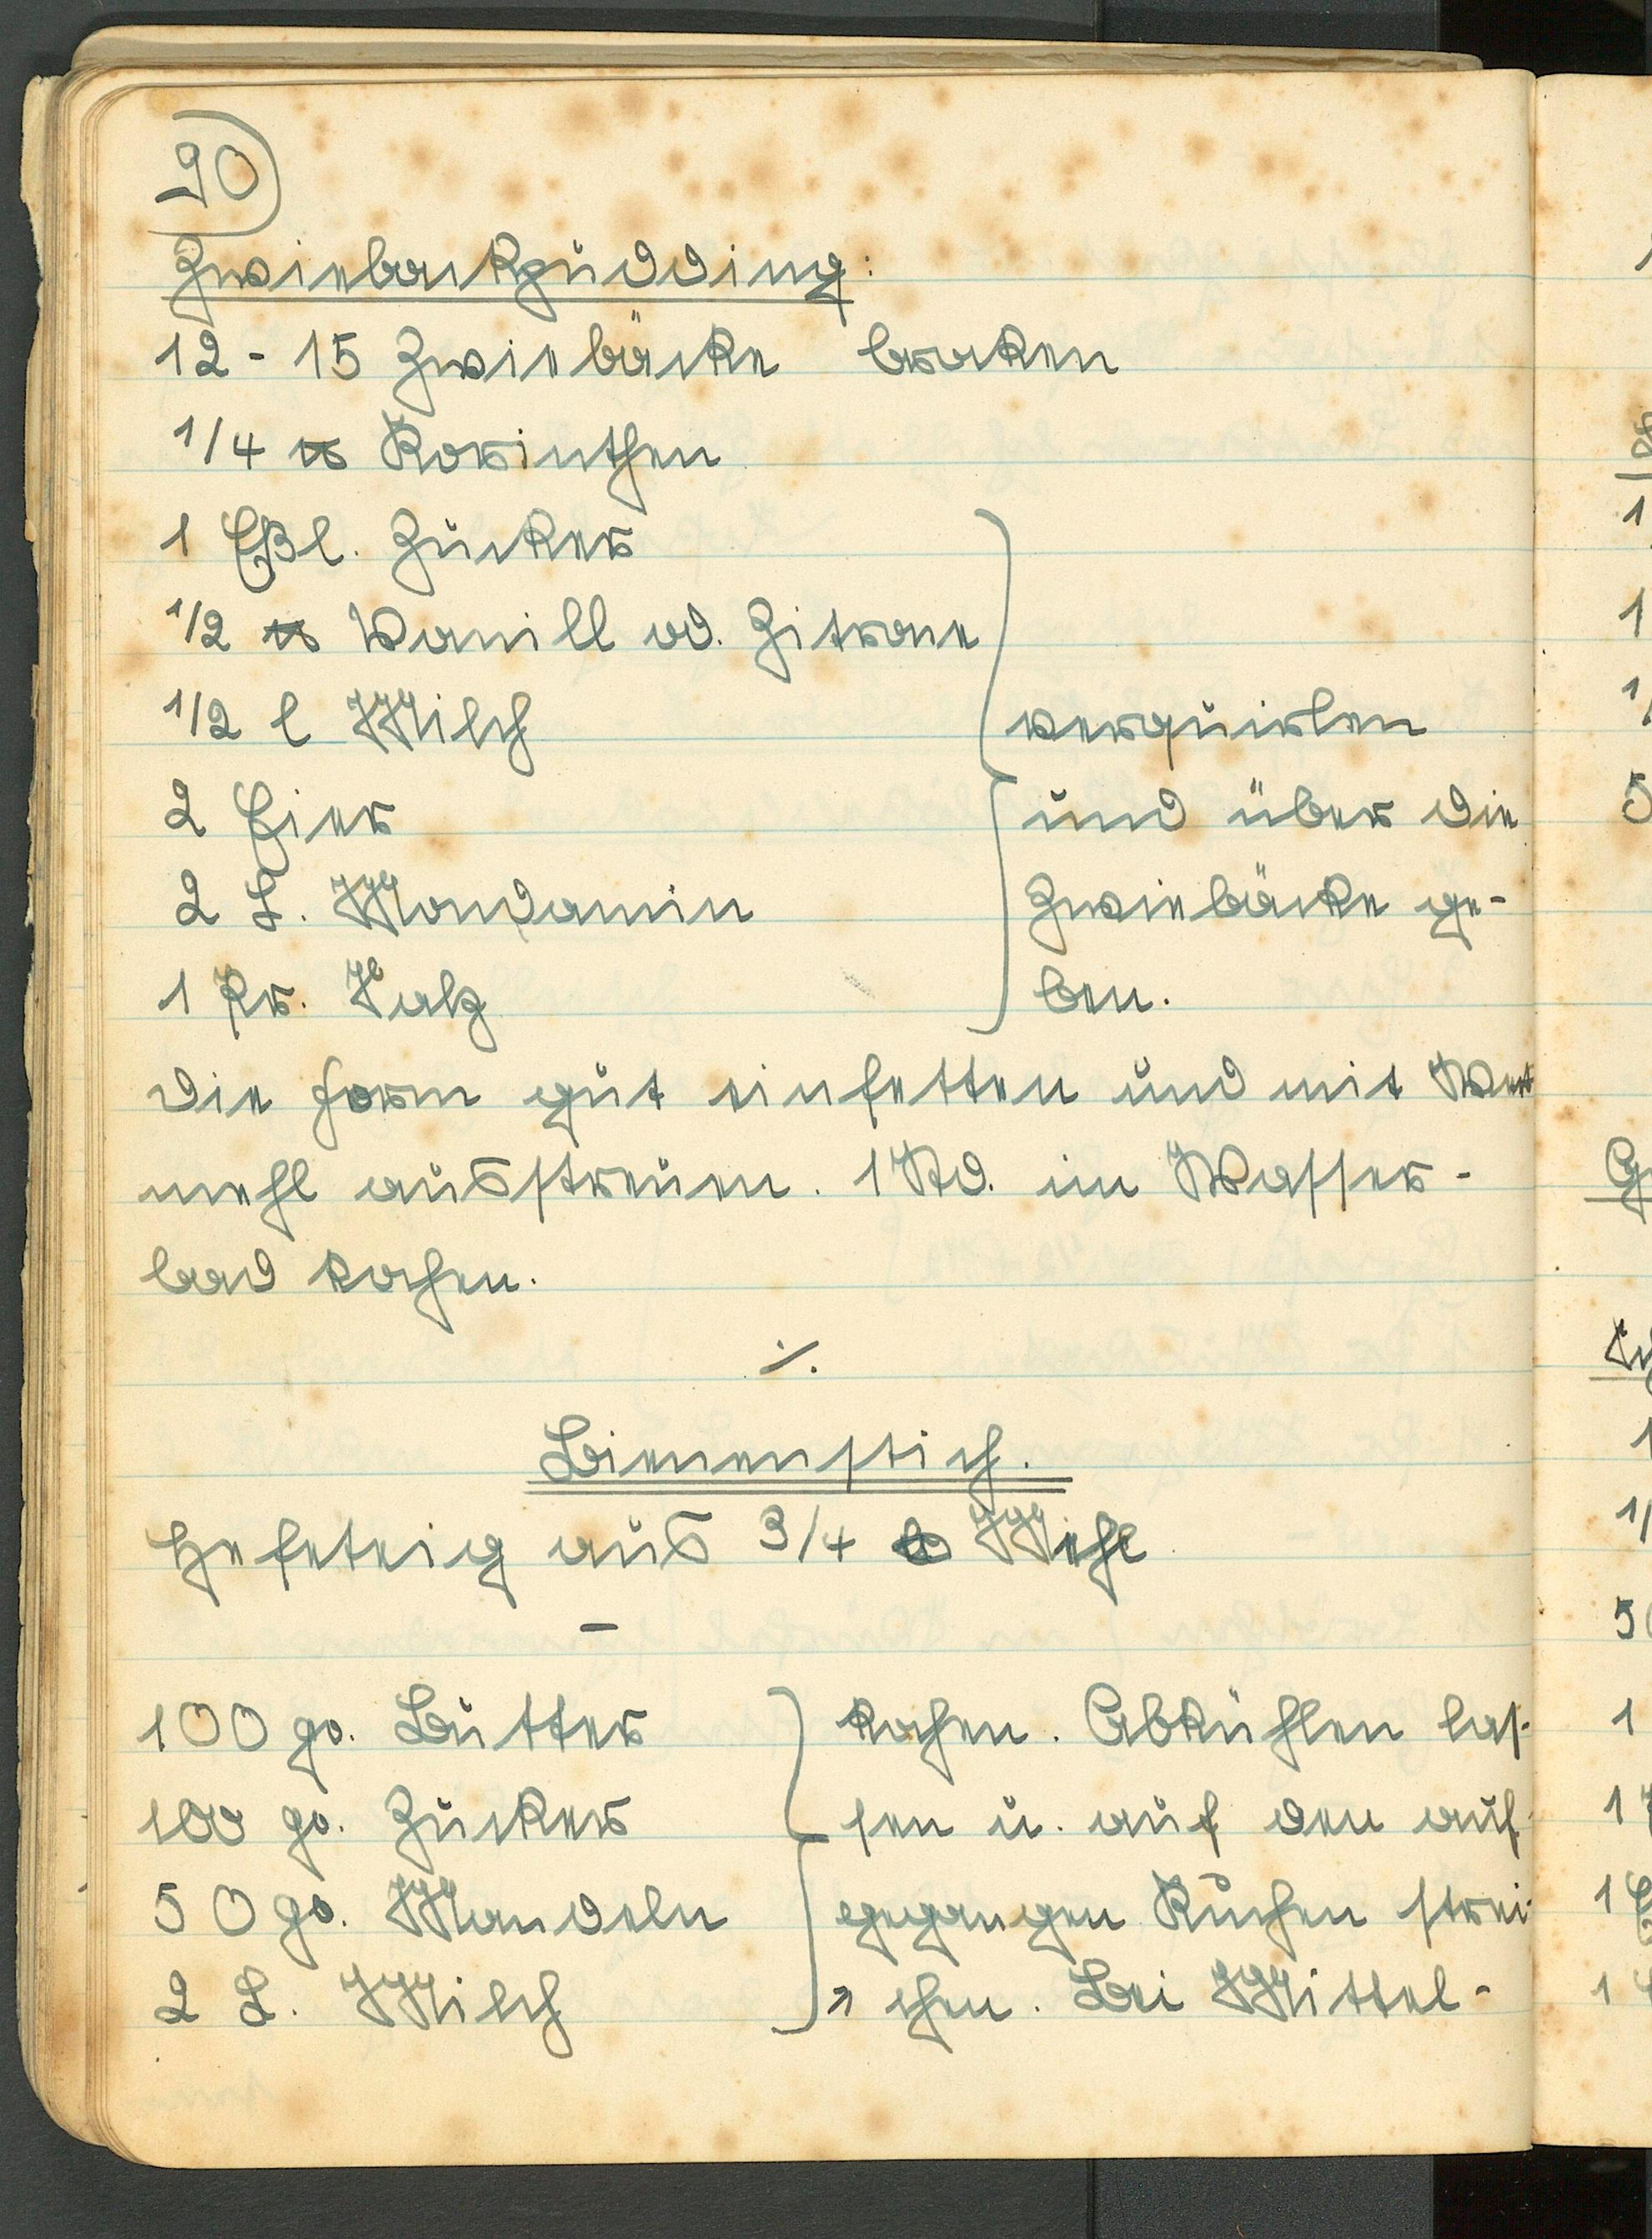 90
Zwiebackpudding:
12 - 15 Zwiebäcke broken
1/4 ℔ Korinthen
1 Eßl. Zucker
1/2 ℔ Vanill od. Zitrone
1/2 l Milch
verquirlen
2 Eier
und über die
2 L. Mondamin
Zwiebäcke ge-
1 Pr. Salz
ben.
Die Form gut einfetten und mit
mehl ausstreuen. 1 Std. im Wasser-
bad kochen.
·/.
Bienenstich.
Hefeteig aus 3/4 ℔ Mehl
–
100 gr. Butter
kochen. Abkühlen las-
100 gr. Zucker
sen u. auf den auf-
50 gr. Mandeln
gegangen Kuchen strei-
2 L. Milch
chen. Bei Mittel-